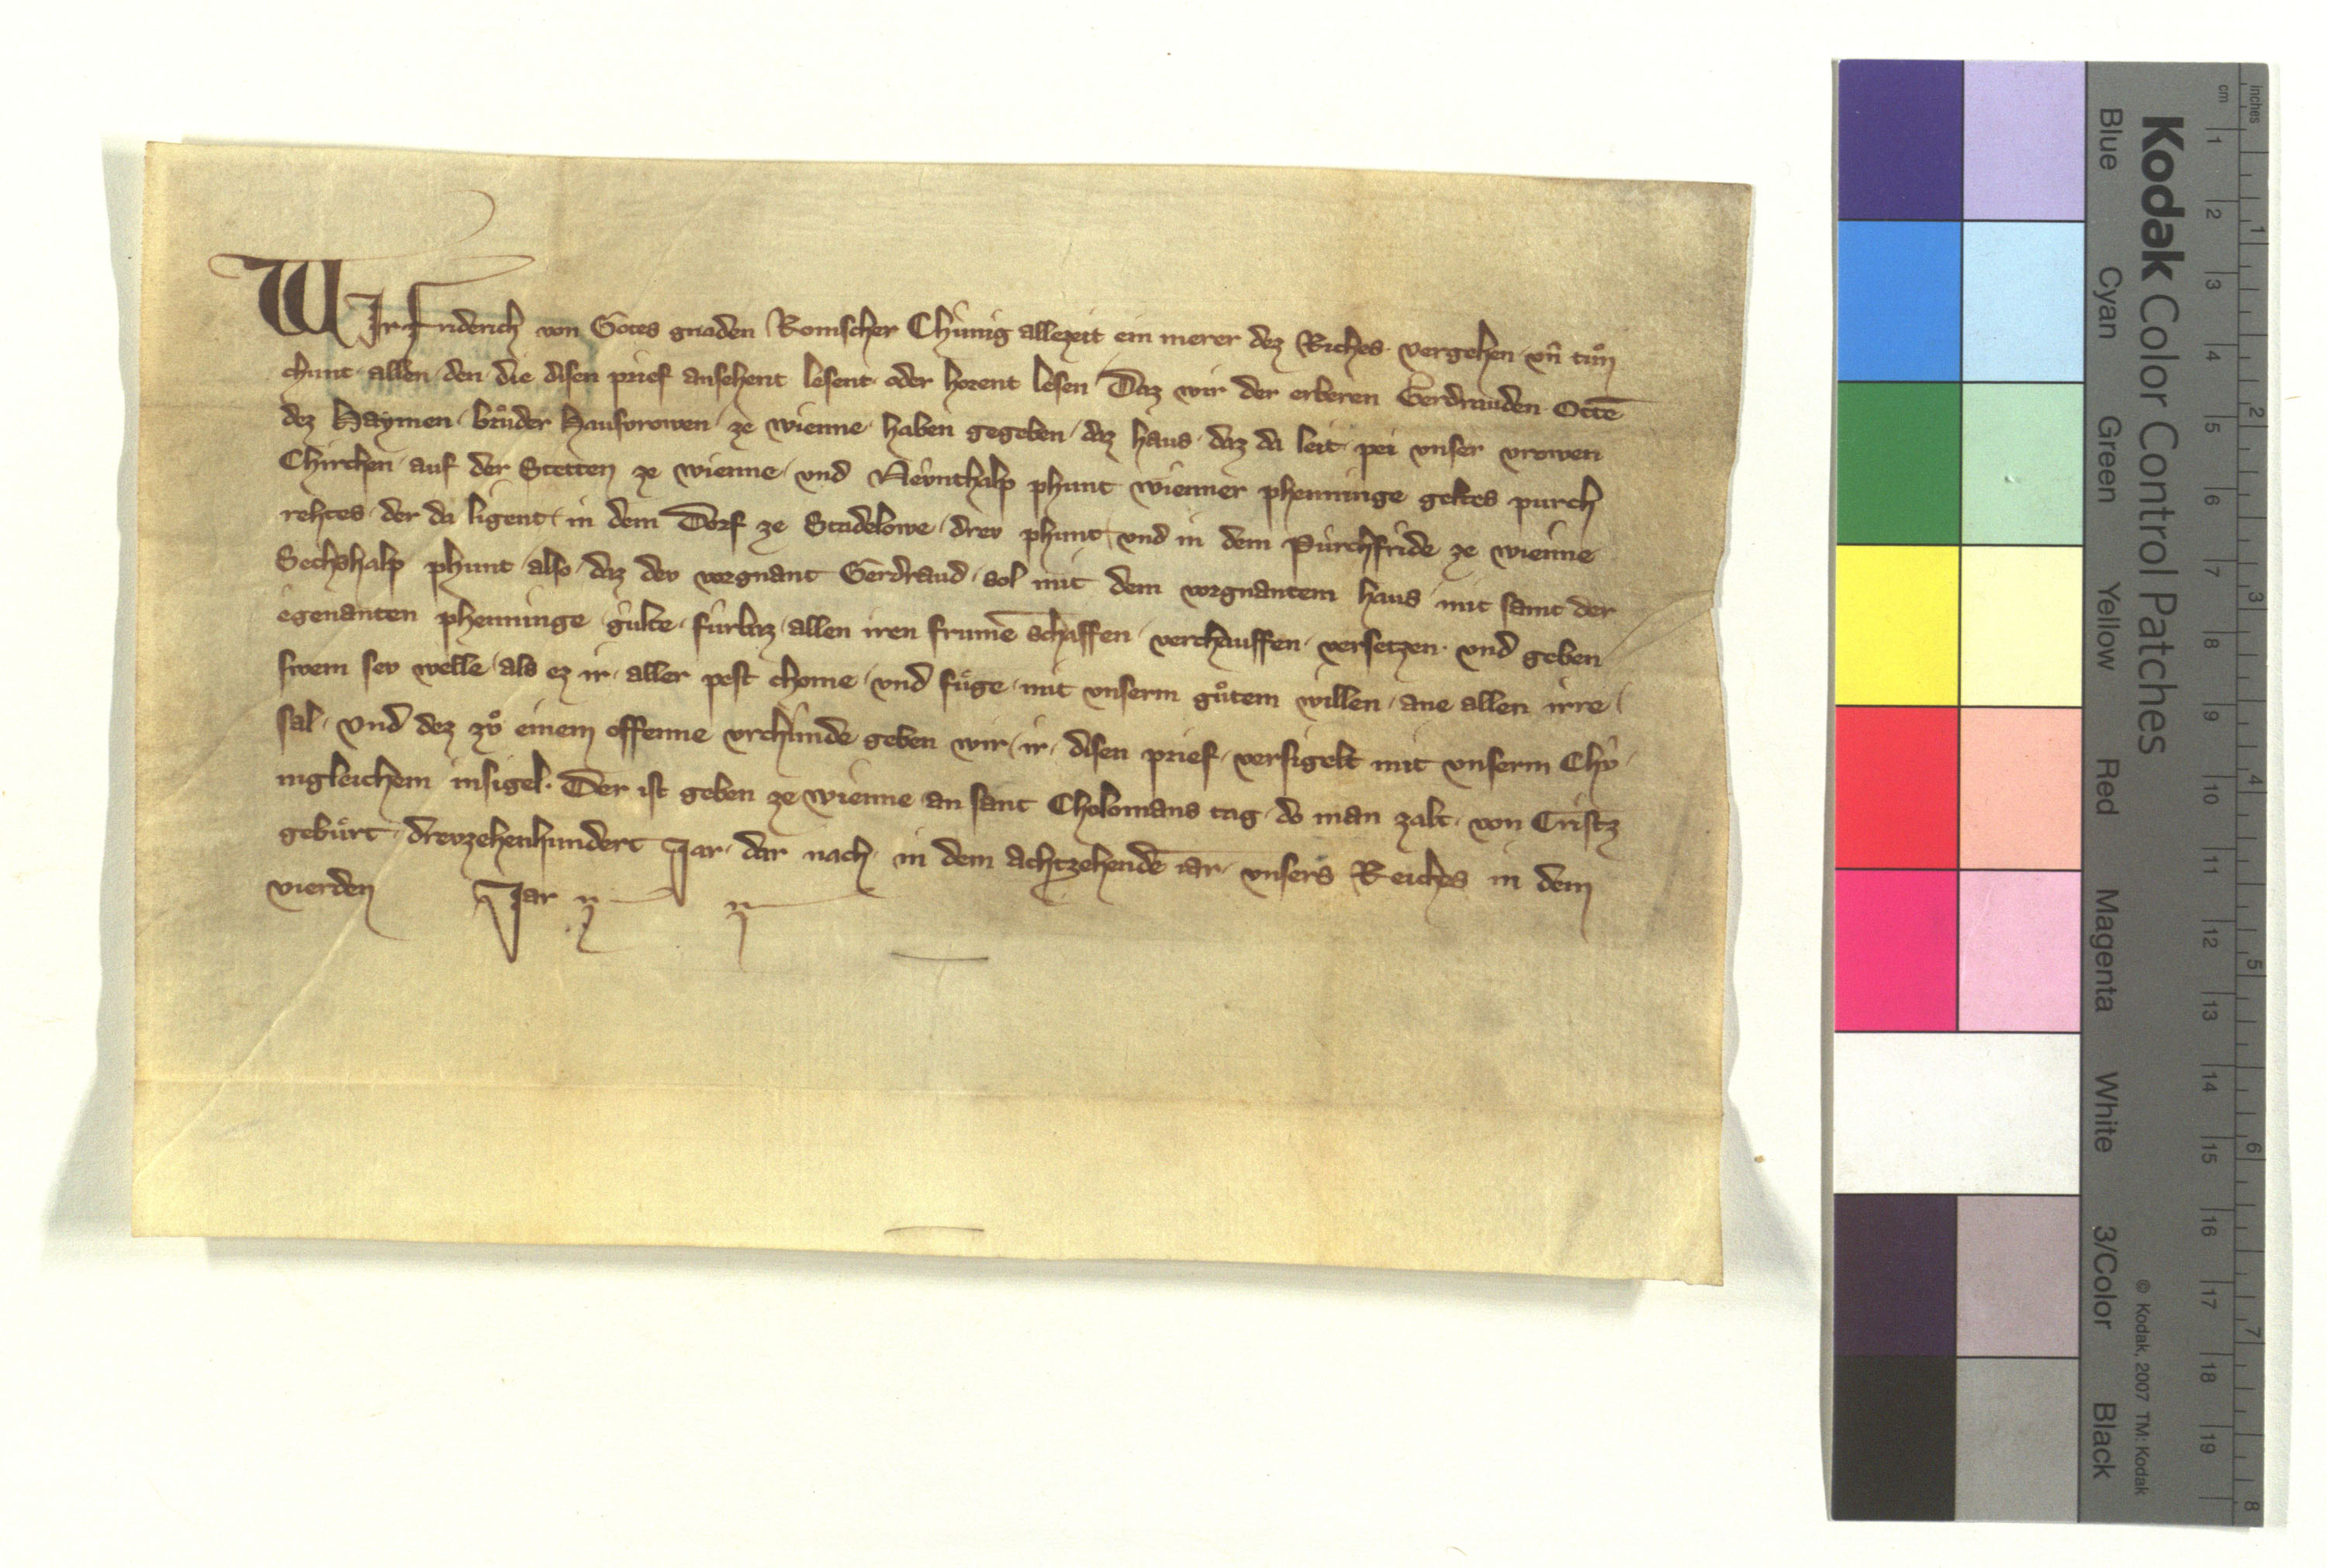 WIr Friderich von Gotes gnaden Romischer Chünig allezeit ein merer dez Riches vergehen vn̄ tuͦn
chunt allen den die disen prief ansehent lesent oder horent lesen Daz wir der erberen Gerdrauden Ottē
dez Haymen bruͦder Hausvrowen ze wienne haben gegeben daz haus daz da leit pei vnser vrowen
Chirchen auf der Stetten ze wienne vnd Nevnthalp phunt wienner phenninge geltes purch
rehtes der da ligent in dem Dorf ze Stadelowe drev phunt vnd in dem Purchfride ze wienne
Sechshalp phunt also daz dev vorgnant Gerdraud sol mit dem vorgnantem haus mit samt der
egenanten phenninge gülte fürbaz allen iren frumē schaffen verchauffen versetzen vnd geben
swem sev welle als ez ir aller pest chome vnd fuͤge mit vnserm guͦtem willen ane allen irre
sal vnd dez zvͦ einem offenne vrchünde geben wir ir disen prief versigelt mit vnserm Chv̇
nigleichem insigel. Der ist geben ze wienne an sant Cholomans tag do man zalt von Cristz
gebuͤrt drevzehenhundert Jar dar nach in dem achtzehendē iar vnsers Reiches in dem
vierden Jar
Kodak Color Control Patches
Blue Cyan Green Yellow Red Magenta White 3/Color Black
© Kodak, 2007 TM: Kodak
cm 1 2 3 4 5 6 7 8 9 10 11 12 13 14 15 16 17 18 19
inches 1 2 3 4 5 6 7 8